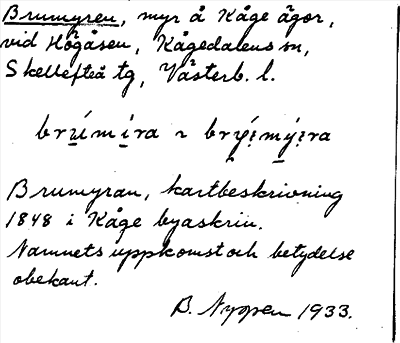 Brumyren, myr å Kåge ägor,
vid Högåsen, Kågedalens sn,
Skellefteå tg, Västerb. l.
brṷ́mi̭ra ~ brýi̭mýi̭ra
Brumyran, kartbeskrivning
1848 i Kåge byaskrin.
Namnets uppkomst och betydelse
obekant.
B. Nygren 1933.